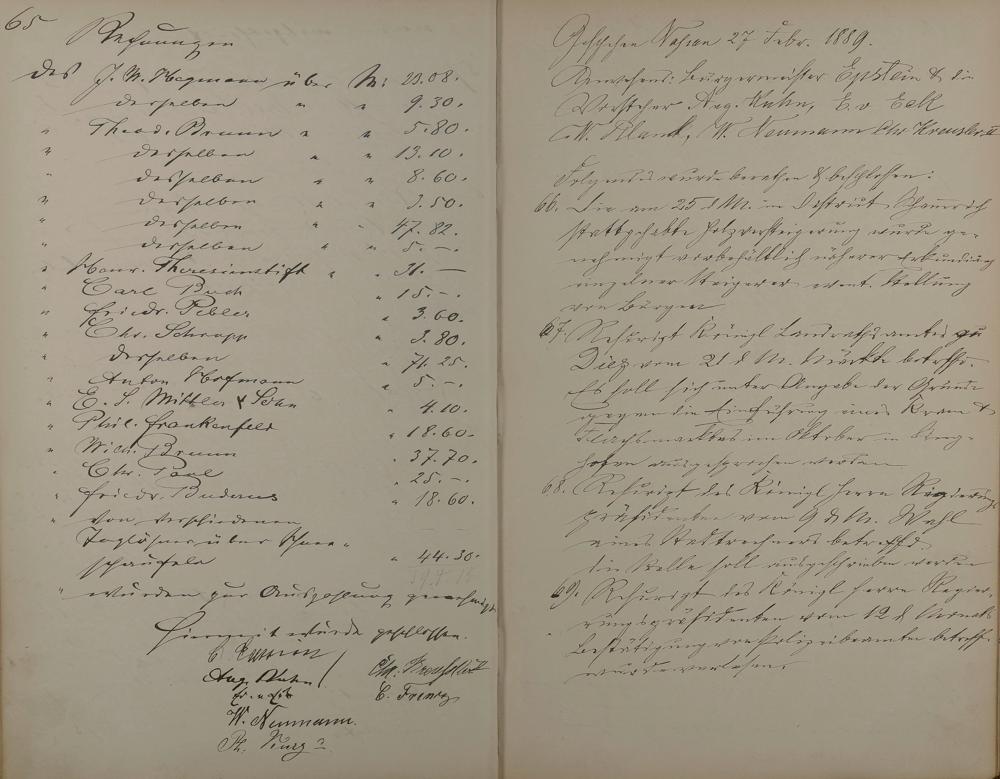 65
Rechnungen
des J. W. Hegmann über M: 20.08.
desselben " " 9.30.
" Theod. Brumm " " 5.80.
" desselben " " 13.10.
" desselben " " 8.60.
" desselben " " 3.50.
" desselben " " 47.82.
" desselben " " 5.—.
" Henr. Theresienstift " " 31.—
" Carl Buch " 15.—.
" Friedr. " 3.60.
" Chr. Schrupp " 3.80.
" desselben " 71.25.
" Anton Hofmann " 5.—.
" E. S. Mittler & Sohn " 4.10.
" Phil. Frankenfeld " 18.60.
" Wilh. Brumm " 37.70.
" Chr. Paul " 25.—.
" Friedr. Buderus " 18.60.
" von verschiedenen
Taglöhner über Schnee-
schaufeln " 44.30.
" wurden zur Auszahlung genehmigt
Hiermit wurde geschlossen.
Aug. Kuhn
Chr. Kreusler II
W. Neumann.
Geschehen Nassau 27 Febr. 1889.
Anwesend: Bürgermeister Epstein & die
Vorsteher Aug. Kuhn, E. v Eck
W. Neumann Chr Kreusler II
Folgendes wurde berathen & beschlossen:
66. Die am 25 d M. im District
stattgehabte Holzversteigerung wurde ge-
nehmigt vorbehältlich näherer Erkundigung
einzelner Steigerer event. Stellung
von Bürgen
67. Rescript Königl Landrathsamtes zu
Diez vom 21 d M. Märkte betreffd.
Es soll sich unter Angabe der Gründe
gegen die Einführung eines Kram &
Flachsmarktes im Oktober in Sing-
hofen ausgesprochen werden
68. Rescript des Königl Herrn Regierungs
präsidenten vom 9 d M. Wahl
eines Stadtrechners betreffd.
die Stelle soll ausgeschrieben werden
69. Rescript des Königl Herrn Regier-
ungspräsidenten vom 12 d Monats
Bestätigung von Polizeibeamten betreffd.
wurde verlesen.